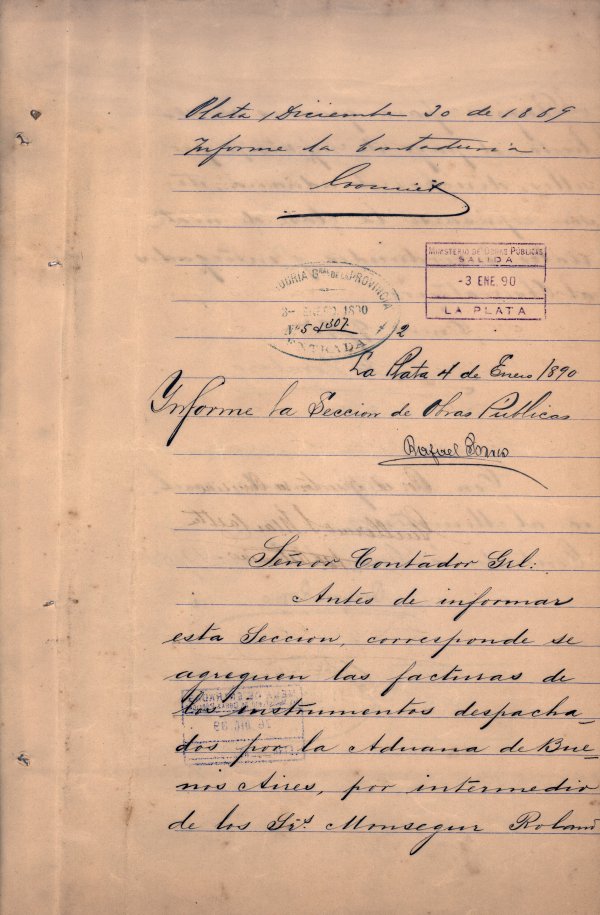 Plata, Diciembre 30 de 1889
Informe la Contaduria
MINISTERIO DE OBRAS PÚBLICAS
SALIDA
-3 ENE. 90
LA PLATA
DE LA PROVINCIA
1890
Nº 5 1307 4 2
ENTRADA
La Plata 4 de Enero 1890
Informe la Seccion de Obras Públicas
Rafael
Señor Contador Grl:
Antes de informar
esta Seccion, corresponde se
agreguen las facturas de
los instrumentos despacha-
dos por la Aduana de Bue-
nos Aires, por intermedio
de los Srs. Monsegur Roland
16 DIC 89